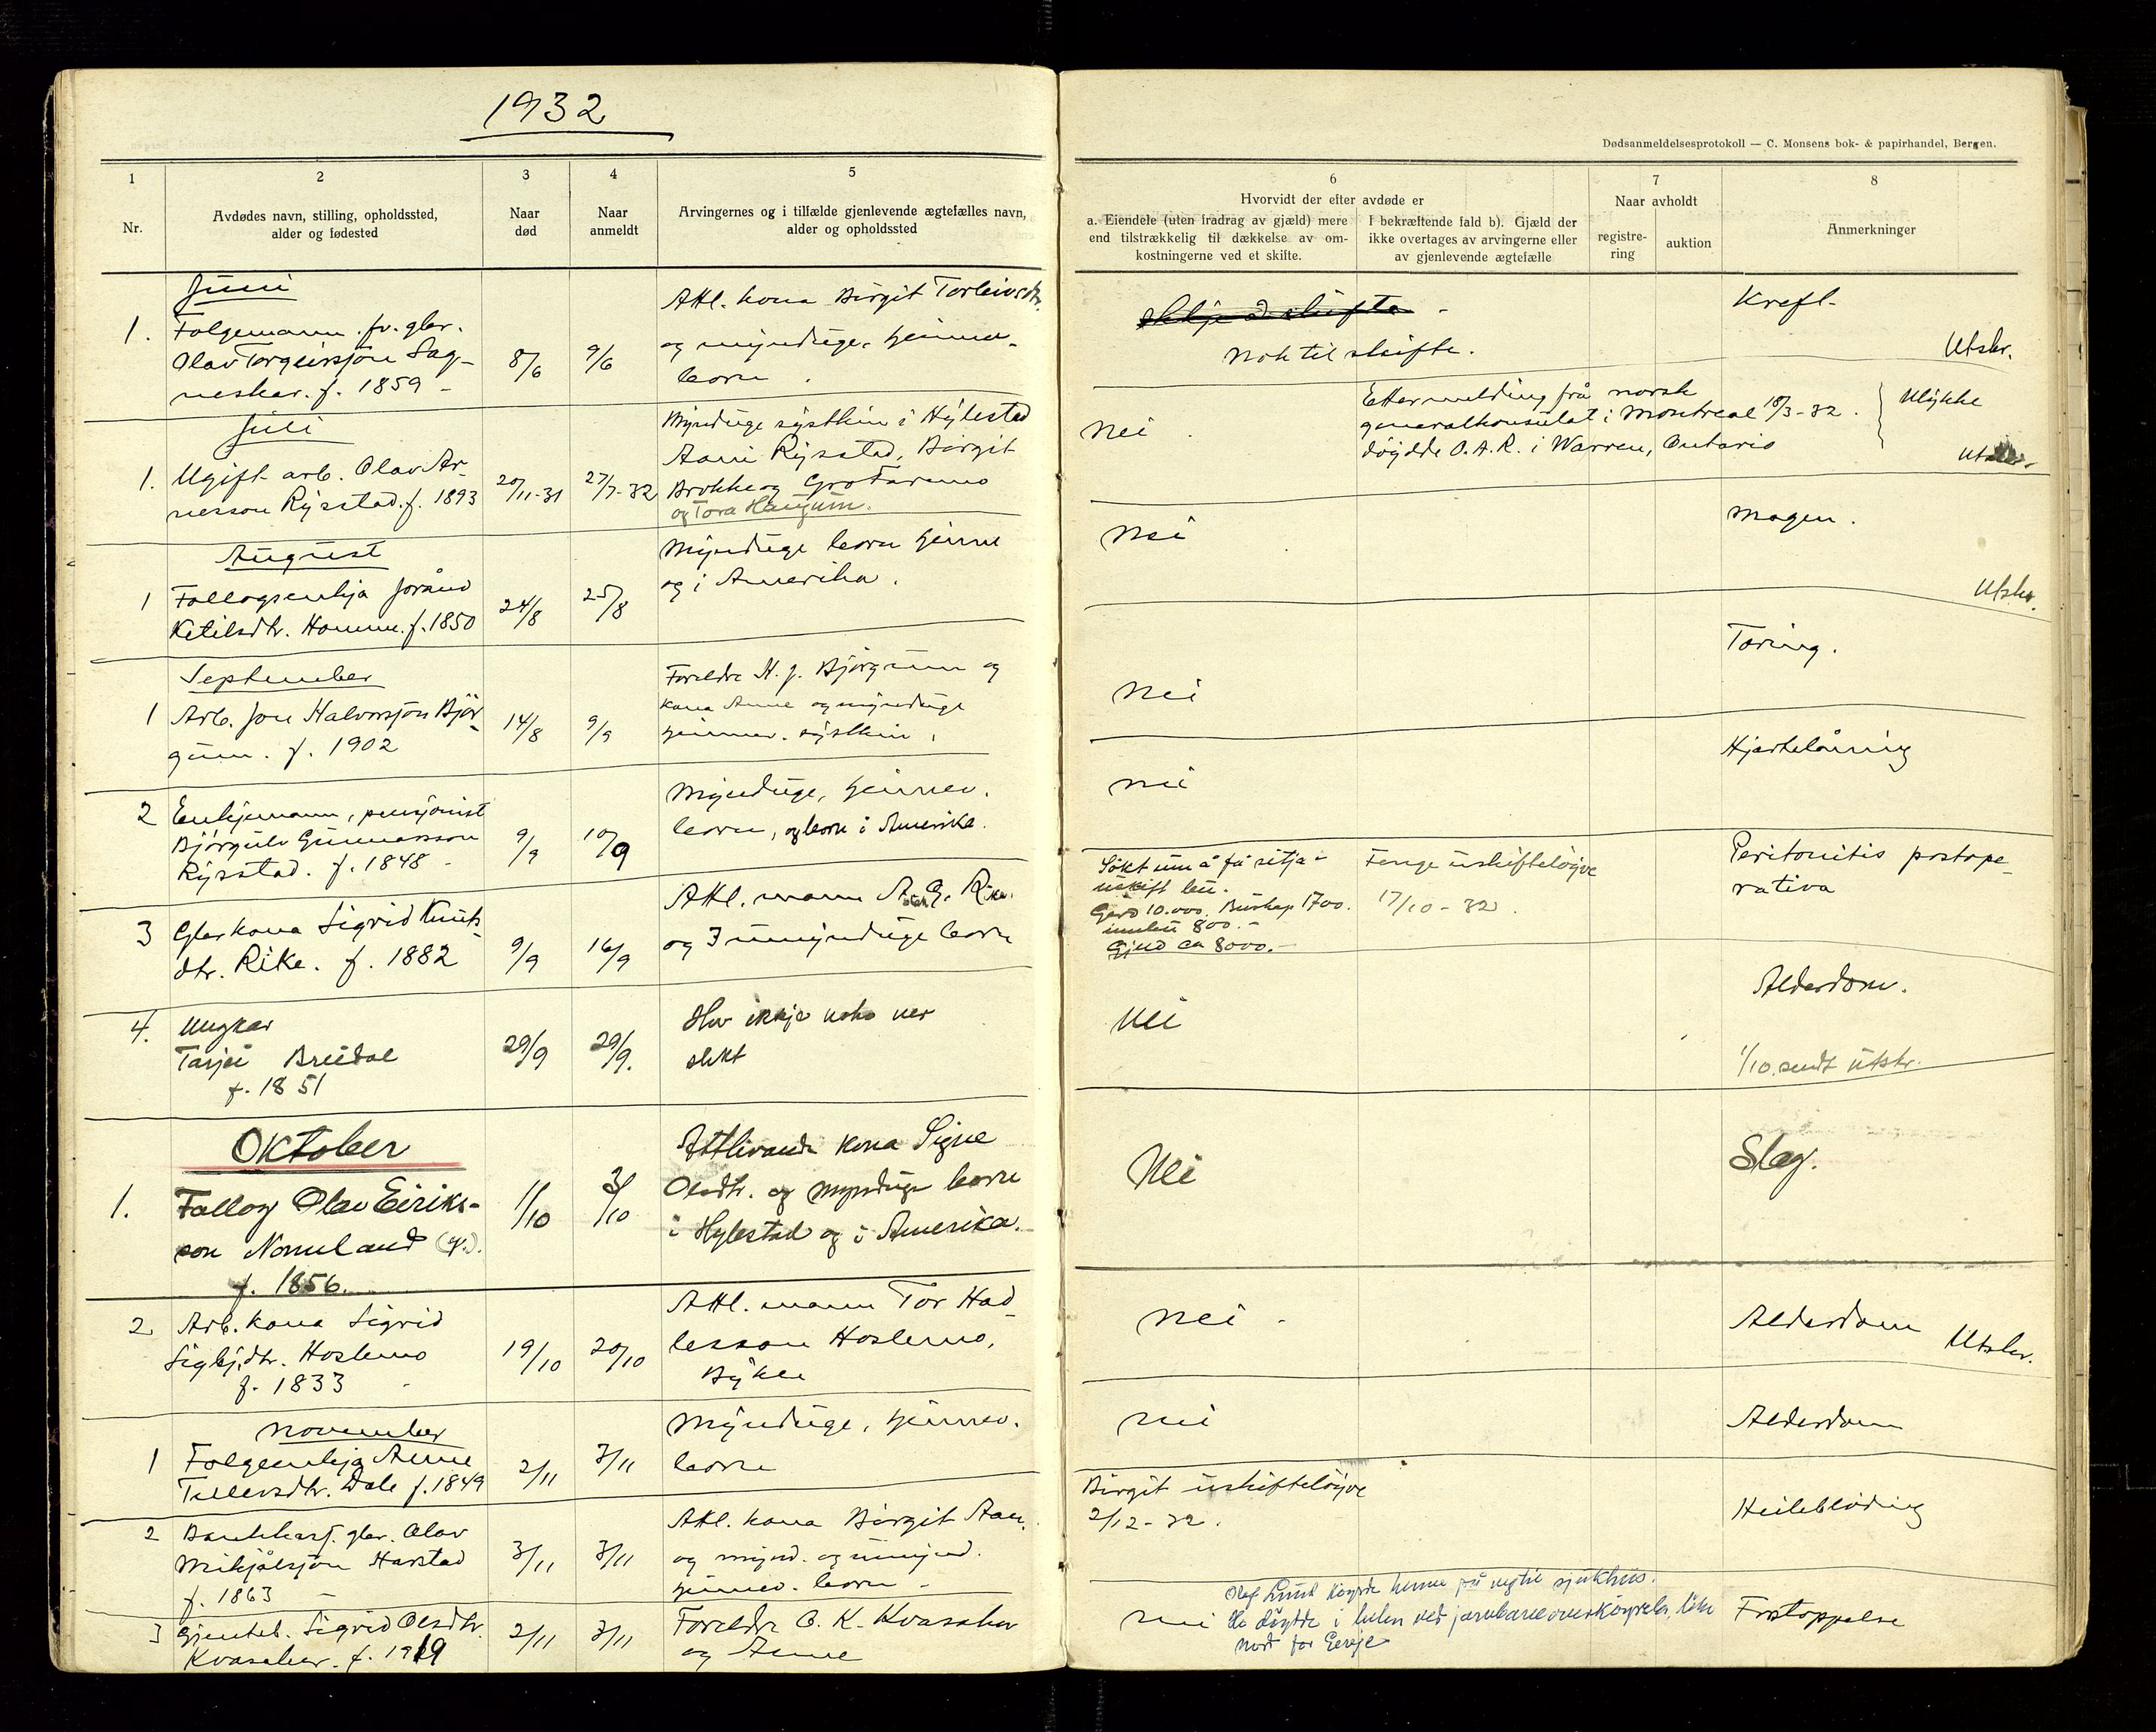 1932
Dødsanmeldelsesprotokoll — C. Monsens bok- & papirhandel, Bergen.
1
Nr.
2
Avdødes navn, stilling, opholdssted,
alder og fødested
3
Naar
død
4
Naar
anmeldt
5
Arvingernes og i tilfælde gjenlevende ægtefælles navn,
alder og opholdssted
6
Hvorvidt der efter avdøde er
a. Eiendele (uten fradrag av gjæld) mere
end tilstrækkelig til dækkelse av om-
kostningerne ved et skifte.
I bekræftende fald b). Gjæld der
ikke overtages av arvingerne eller
av gjenlevende ægtefælle
7
Naar avholdt
registre-
ring
auktion
8
Anmerkninger
Juni
1.
Folgemann. fv. gbr.
Olav Torgeirsson
f. 1859
8/6
9/6
Attl. kona Birgit Torleivsdtr.
og mynduge, heimev.
born
Nok til skifte.
Kreft.
Utskr.
Juli
1.
Ugift arb. Olav Ar-
nesson Rysstad. f. 1893
20/11-31
27/7-32
Mynduge systkin i Hylestad
Aani Rysstad, Birgit
Brokke og Gro
og Tora Haugum.
Nei
Etter melding frå norsk
generalkonsulat i Montreal 18/3-32.
døydde O.A.R. i Warren, Ontario
Ulykke
August
1
Follogsenkja Jorånd
Ketilsdtr. Homme. f. 1850
24/8
25/8
Mynduge born heime
og i Amerika.
Nei
Magen.
Utskr.
September
1
Arb. Jon Halvorsson Bjør-
gum. f. 1902
14/8
9/9
Foreldre H. J. Bjørgum og
kona Anne og mynduge
heimev. systkin.
Nei
Tæring.
2
Enkjemann, pensjonist
Bjørgulv Gunnarsson
Rysstad. f. 1848
9/9
10/9
Mynduge, heimev.
born, og born i Amerika.
Nei
Hjartelåming
3
Gbr kona Sigrid Knuts-
dtr. Rike. f. 1882
9/9
16/9
Attl. mann A. G. Rike.
og 3 umynduge born
Søkt um å få sitja i
uskift bu.
Gard 10.000. Buskap 1700.
innbu 800.-
Gjeld ca 8000.-
Fenge uskifteløyve
17/10-32.
Peritonitis postope-
rativa
4.
Ungkar
Tarjei Breidal
f. 1851
29/9
29/9.
Hev ikkje noko ner
slekt
Nei
Alderdom.
1/10 sendt utskr.
Oktober
1.
Follog Olav Eiriks-
son Nomeland
f. 1856.
1/10
3/10
Attlivande kona Signe
Olsdtr. og mynduge born
i Hylestad og i Amerika.
Nei
Slag.
2
Arb. kona Sigrid
Sigbj.dtr. Hoslemo
f. 1833
19/10
20/10
Attl. mann Tor Had-
lesson Hoslemo,
Bykle
Nei
Alderdom
Utskr.
November
1
Folgeenkja Anne
Tellevsdtr. Dale f. 1849
2/11
3/11
Mynduge, heimev.
born
Nei
Alderdom
2
Bankkass. gbr. Olav
Mikjålsson Harstad
f. 1863
3/11
3/11
Attl. kona Birgit Aan.
og mynd. og umynd.
heimev. born
Birgit uskifteløyve
2/12-32.
Heilebløding
3
Gjenteb. Sigrid Olsdtr.
Kvasaker. f. 1919
2/11
3/11
Foreldre O. K. Kvasaker
og Anne
Nei
Olaf Lund køyrde henne på veg til sjukhus.
Ho døydde i bilen ved jarnbaneoverkøyrsla, like
nord for
Forstoppelse